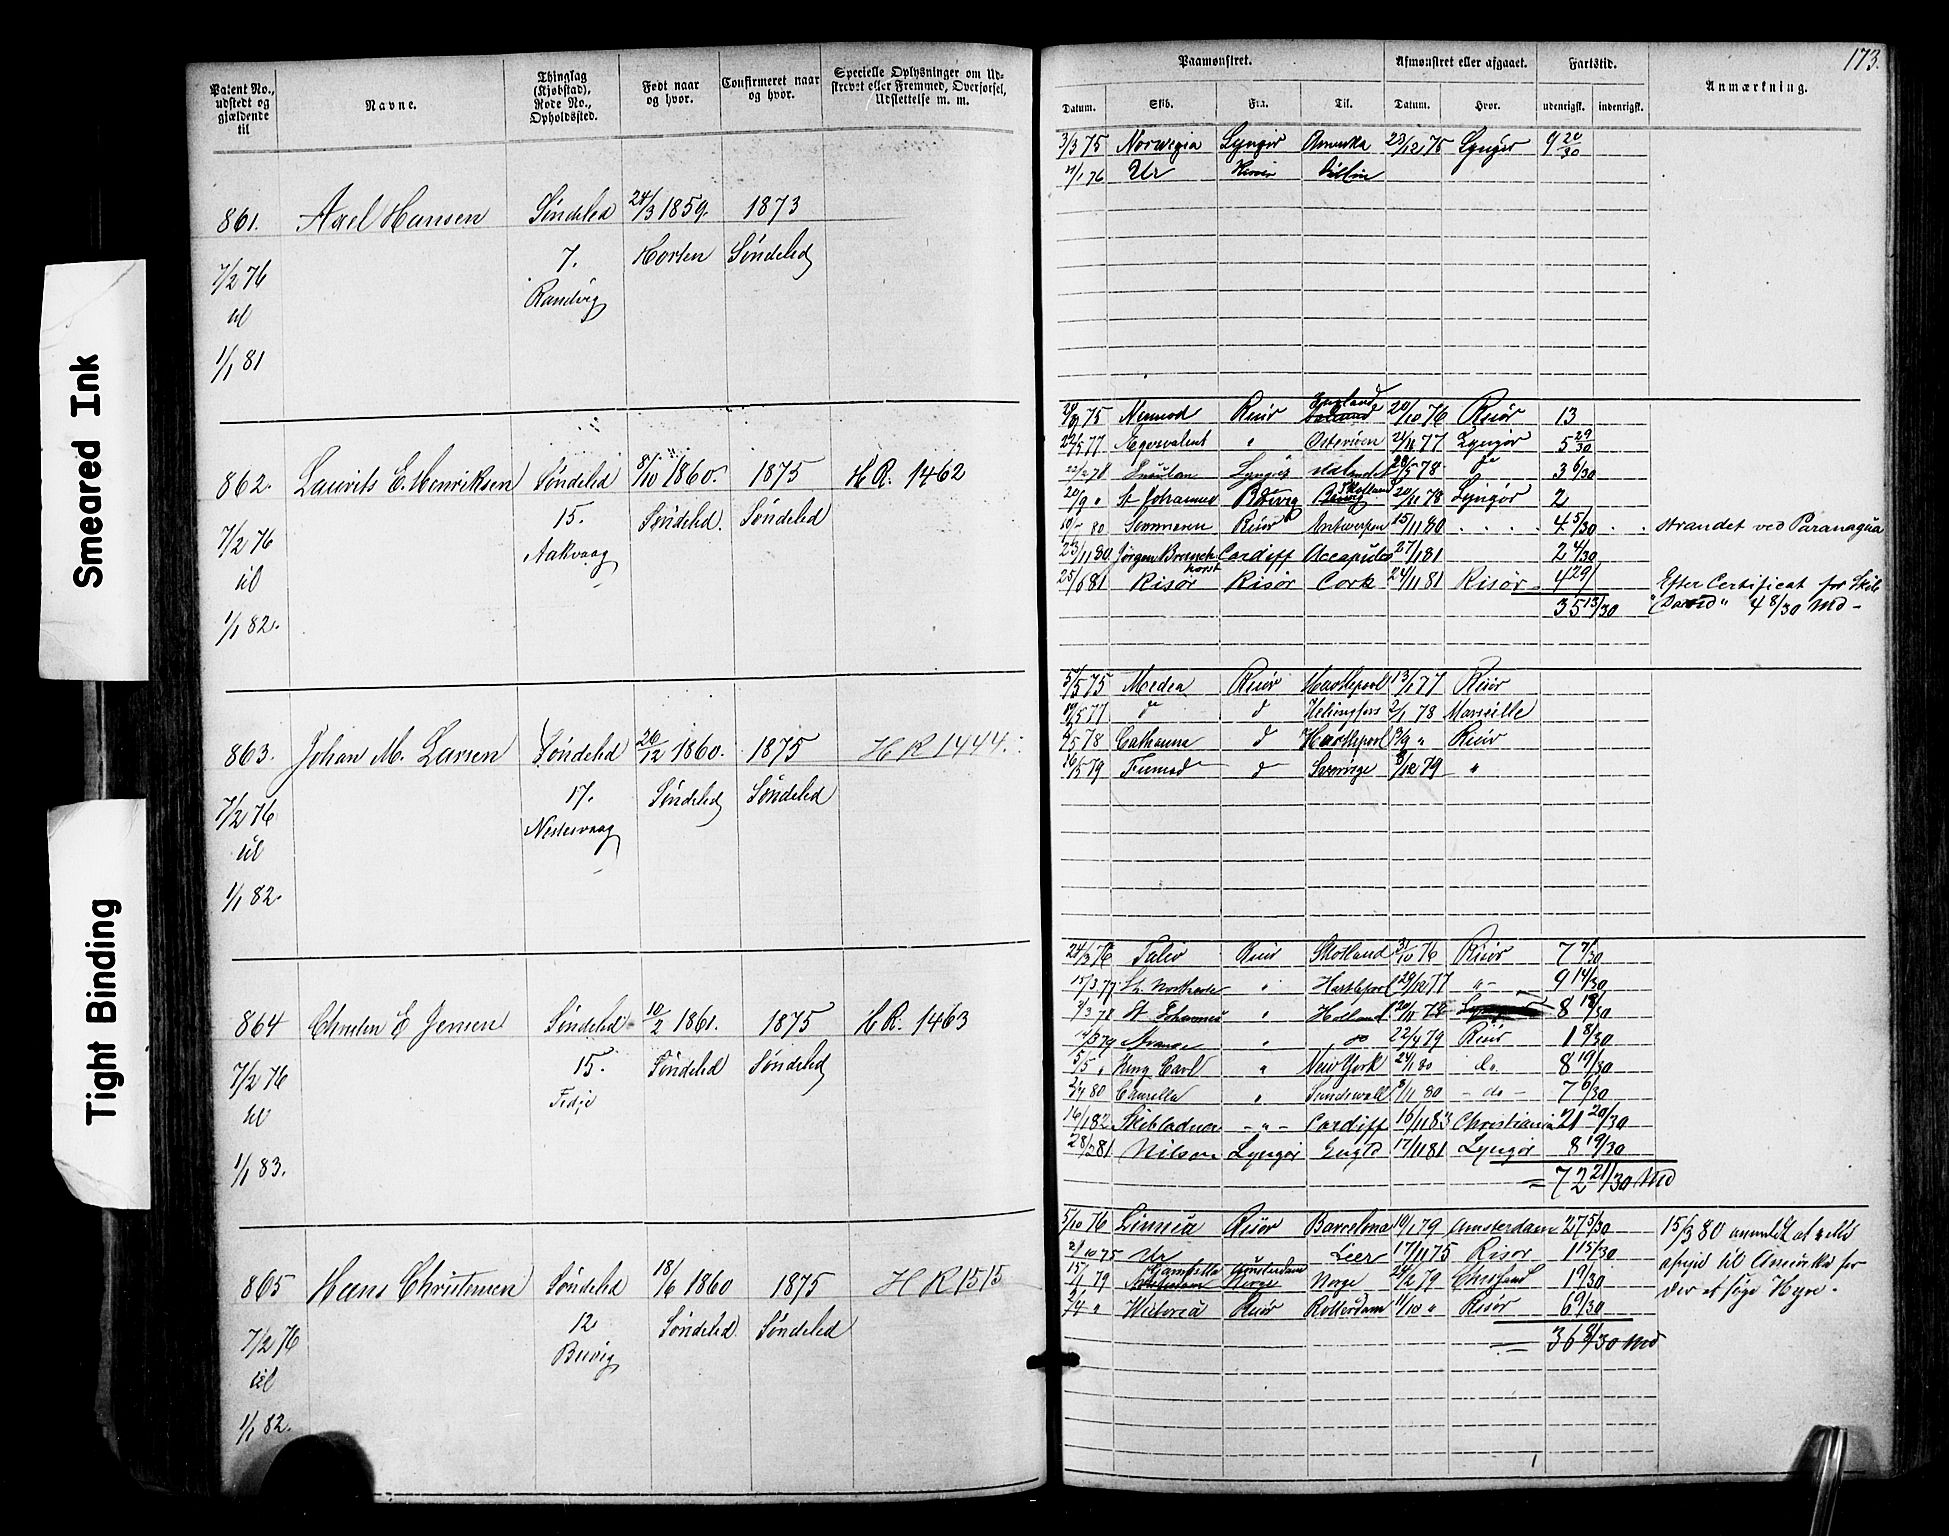 Smeared Ink
Tight Binding
173.
Patent No., udstedt og gjældende til | Navne. | Thinglag (Kjøbstad), Rode No., Opholdssted. | Født naar og hvor. | Confirmeret naar og hvor. | Specielle Oplysninger om Udskrevet eller Fremmed, Overførsel, Udslettelse m. m.
Paamønstret. | Afmønstret eller afgaaet. | Fartstid. | Anmærkning.
Datum. | Skib. | Fra. | Til. | Datum. | Hvor. | udenrigsk. | indenrigsk.
861. Axel Hansen Søndeled 24/3 1859. 1873
7/2 76 7. Horten Søndeled
til Randvig
1/1 81
3/3 75 Norwegia Lyngør Amerika 23/12 75 Lyngør 9 20/30
/1 76 Ur
862. Laurits E. Henriksen Søndeled 8/10 1860. 1875 H R. 1462
7/2 76 15. Søndeled Søndeled
til Aakvaag
1/1 82.
75 Nimrod Risør England 20/10 76 Risør 13
77 Eqvivalent " Osterrisøen 21/11 77 Lyngør 5 29/30
22/2 78 Lyngør Udlandet 28/5 78 do 3 6/30
20/9 " St Johannes Skotland 20/11 78 Lyngør 2
80 Sommeren Risør Antwerpen 15/11 80 4 5/30 strandet ved Paranagua
23/11 80 Jørgen Brunchhorst Cardiff Accapulco 27/1 81 2 4/30
25/6 81 Risør Risør Cork 24/11 81 Risør 4 29/ Efter Certificat for Skib
35 13/30 "David" 4 8/30 Md -
863. Johan M. Larsen Søndeled 26/12 1860. 1875 H R 1444.
7/2 76 17. Søndeled Søndeled
til Nestesvaag
1/1 82.
5/5 75 Medea Risør Hartlepool 13/1 77 Risør
/5 77 do d Helsingfors 2/1 78 Marseille
/5 78 Cathrine d Hartlepool /9 " Risør
16/5 79 d 8/12 79 "
864 Christen E Jensen Søndeled 10/2 1861. 1875 H R. 1463
7/2 76 15. Søndeled Søndeled
til Fidje
1/1 83.
24/3 76 Risør Skotland 31/10 76 Risør 7 7/30
15/3 77 " Hartlepool 29/12 77 " 9 14/30
/3 78 St. Johannes " Holland 20/11 78 8 18/30
/3 79 " do 22/4 79 Risør 1 8/30
5/5 " King Carl " New York 24/1 80 do 8 19/30
80 " Sundsvall 8/11 80 - do - 7 6/30
16/1 82 Skibladner - " - Cardiff 16/11 83 Christiania 21 20/30
28/2 81 Nilson Lyngør Engld 17/11 81 Lyngør 8 19/30
= 72 21/30 Md
865 Hans Christensen Søndeled 18/6 1860 1875 H R 1515
7/2 76 12 Søndeled Søndeled
til Bevig
1/1 82.
5/10 76 Linnea Risør Barcelona 19/1 79 Amsterdam 27 5/30 15/3 80 anmeldt at ville
2/10 75 Ur Leer 17/11 75 Risør 1 15/30 afreise til Amerika for
15/1 79 Amsterdam Norge Norge 24/2 79 1 9/30 der at søge Hyre.
2/4 " Victoria Risør Rotterdam 11/10 " Risør 6 9/30
= 36 8/30 Md